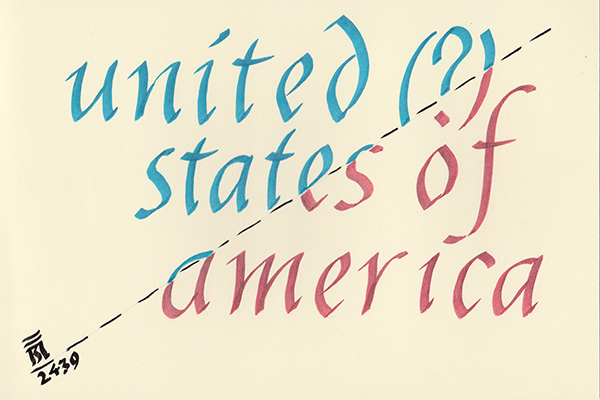 united (?)
states of
america
2439